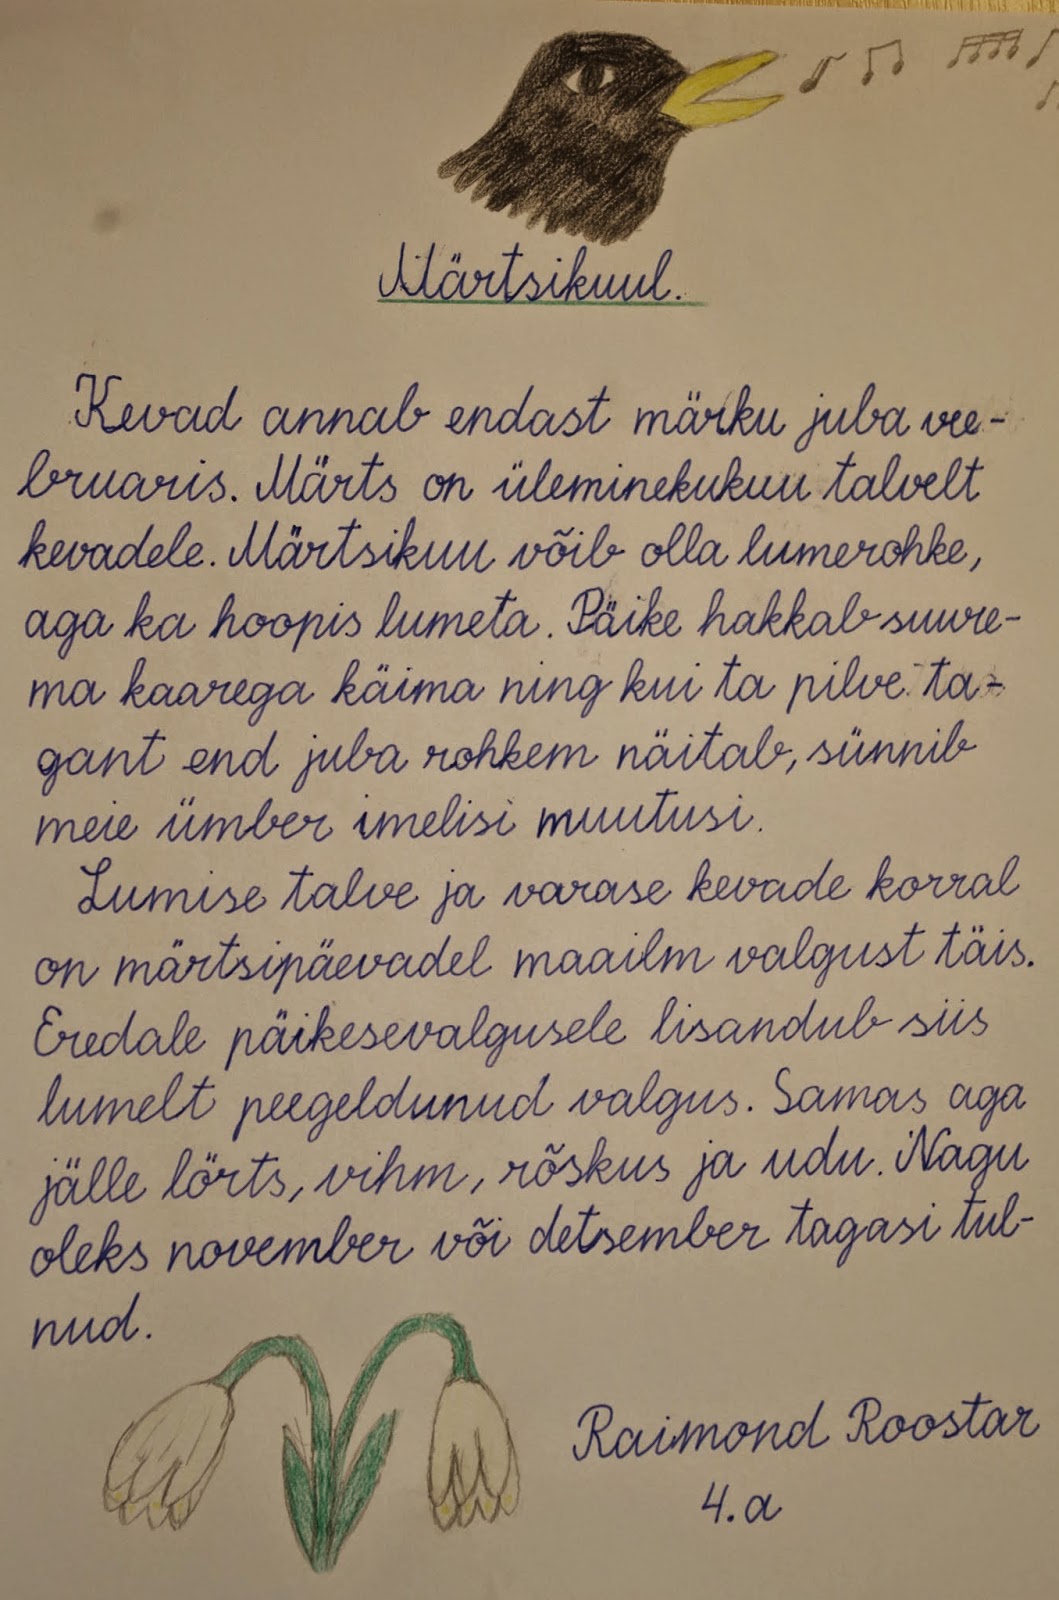 Märtsikuul.
Kevad annab endast märku juba vee-
bruaris. Märts on üleminekukuu talvelt
kevadele. Märtsikuu võib olla lumerohke,
aga ka hoopis lumeta. Päike hakkab suure-
ma kaarega käima ning kui ta pilve ta-
gant end juba rohkem näitab, sünnib
meie ümber imelisi muutusi.
Lumise talve ja varase kevade korral
on märtsipäevadel maailm valgust täis.
Eredale päikesevalgusele lisandub siis
lumelt peegeldunud valgus. Samas aga
jälle lörts, vihm, rõskus ja udu. Nagu
oleks november või detsember tagasi tul-
nud.
Raimond Roostar
4.a